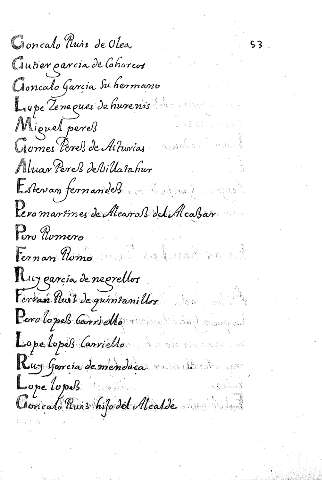 Goncalo Ruis de Olea 53
Guter garcia de Cohorcos
Goncalo Garcia Su hermano
Lope Zenegues de hurenis
Miguel peres
Gomes Peres de Asturias
Aluar Peres de Billatahur
Estevan fernandes
Pero martines de Alcaras del Alcassar
Pero Romero
Fernan Romo
Ruy garcia de negrellos
Fernan Ruis de quintanillos
Pero lopes Carriello
Lope lopes Carriello
Ruy Garcia de mendoca
Lope lopes
Goncalo Ruis hijo del Alcalde